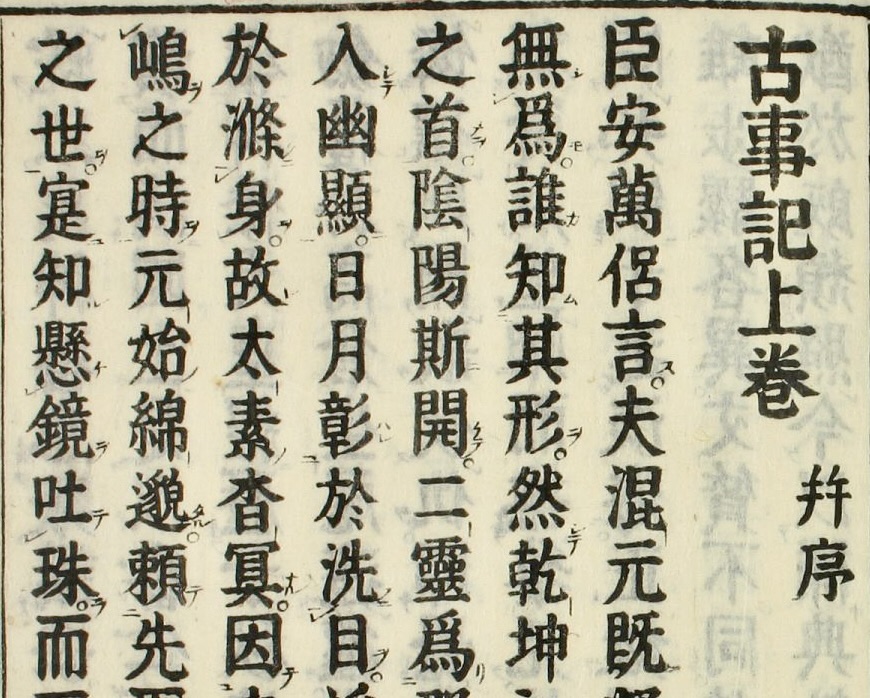 古事記上卷
幷序
臣安萬侶言夫混元既
無爲誰知其形然乾坤
之首陰陽斯開二靈爲
入幽顯日月彰於洗目
於滌身故太素杳冥因
嶋之時元始綿邈頼先
之世寔知懸鏡吐珠而